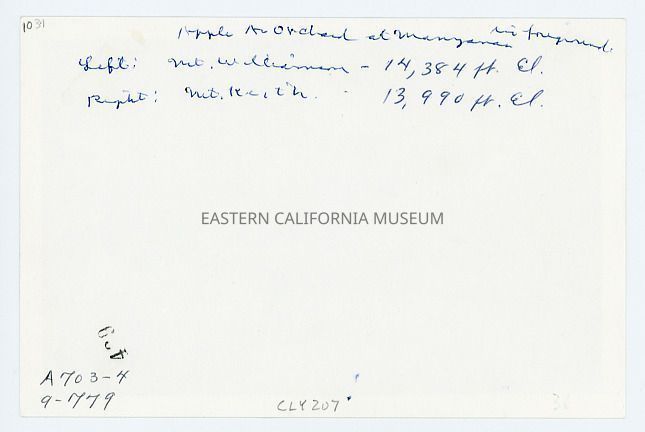 1031
Apple Orchard at Manzanar in foreground.
Left: Mt. Williamson - 14,384 ft. El.
Right: Mt. Keith. - 13,990 ft. El.
EASTERN CALIFORNIA MUSEUM
A703-4
9-779
CLY207